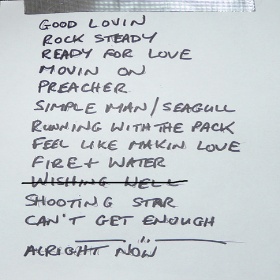 GOOD LOVIN
ROCK STEADY
READY FOR LOVE
MOVIN ON
PREACHER
SIMPLE MAN/SEAGULL
RUNNING WITH THE PACK
FEEL LIKE MAKIN LOVE
FIRE + WATER
WISHING WELL
SHOOTING STAR
CAN'T GET ENOUGH
ALRIGHT NOW